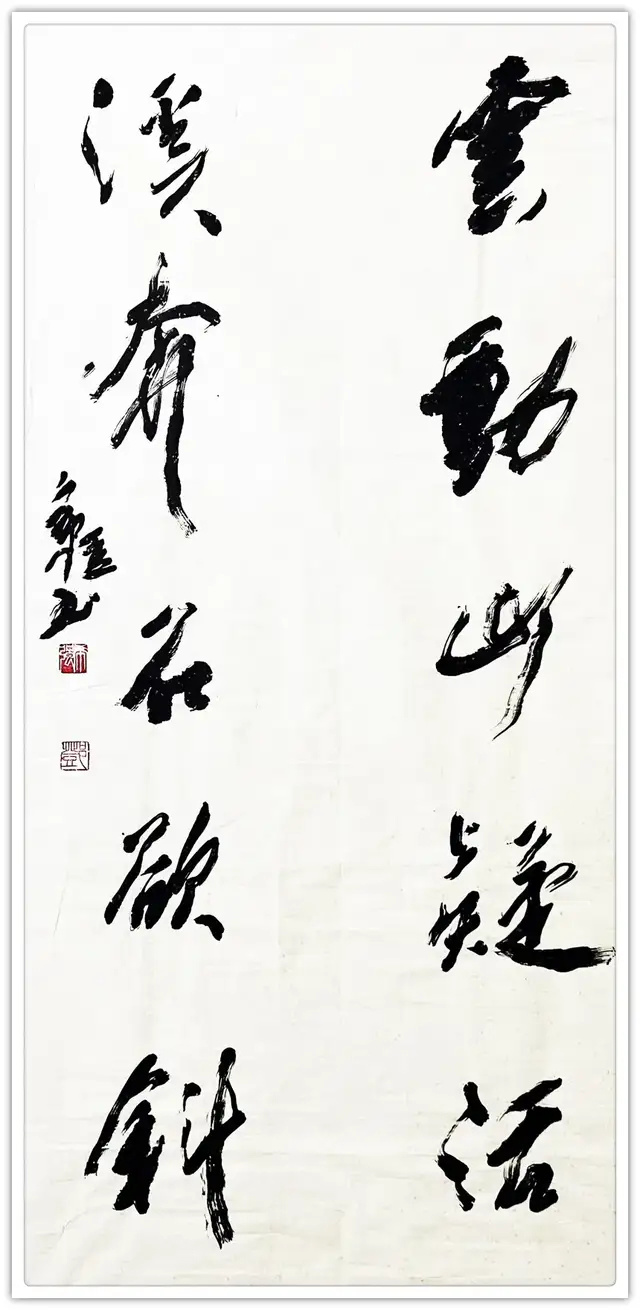 雲動山疑活
溪奔石欲斜